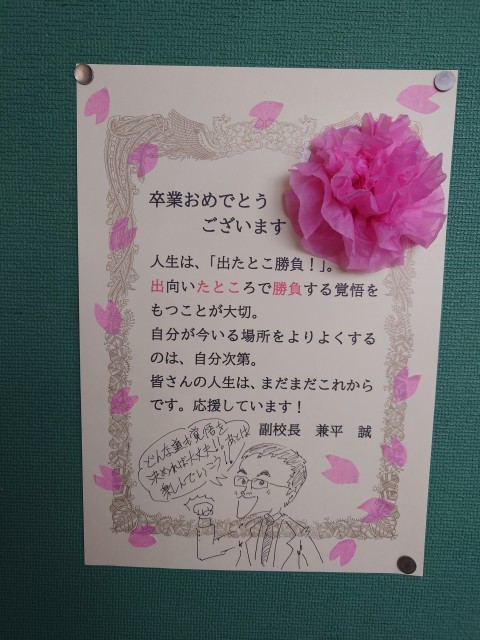 卒業おめでとう
ございます
人生は、「出たとこ勝負！」。
出向いたところで勝負する覚悟を
もつことが大切。
自分が今いる場所をよりよくする
のは、自分次第。
皆さんの人生は、まだまだこれから
です。応援しています！
副校長　兼平　誠
どんな道も覚悟を
決めれば大丈夫!!あとは
楽しんでいこう!!